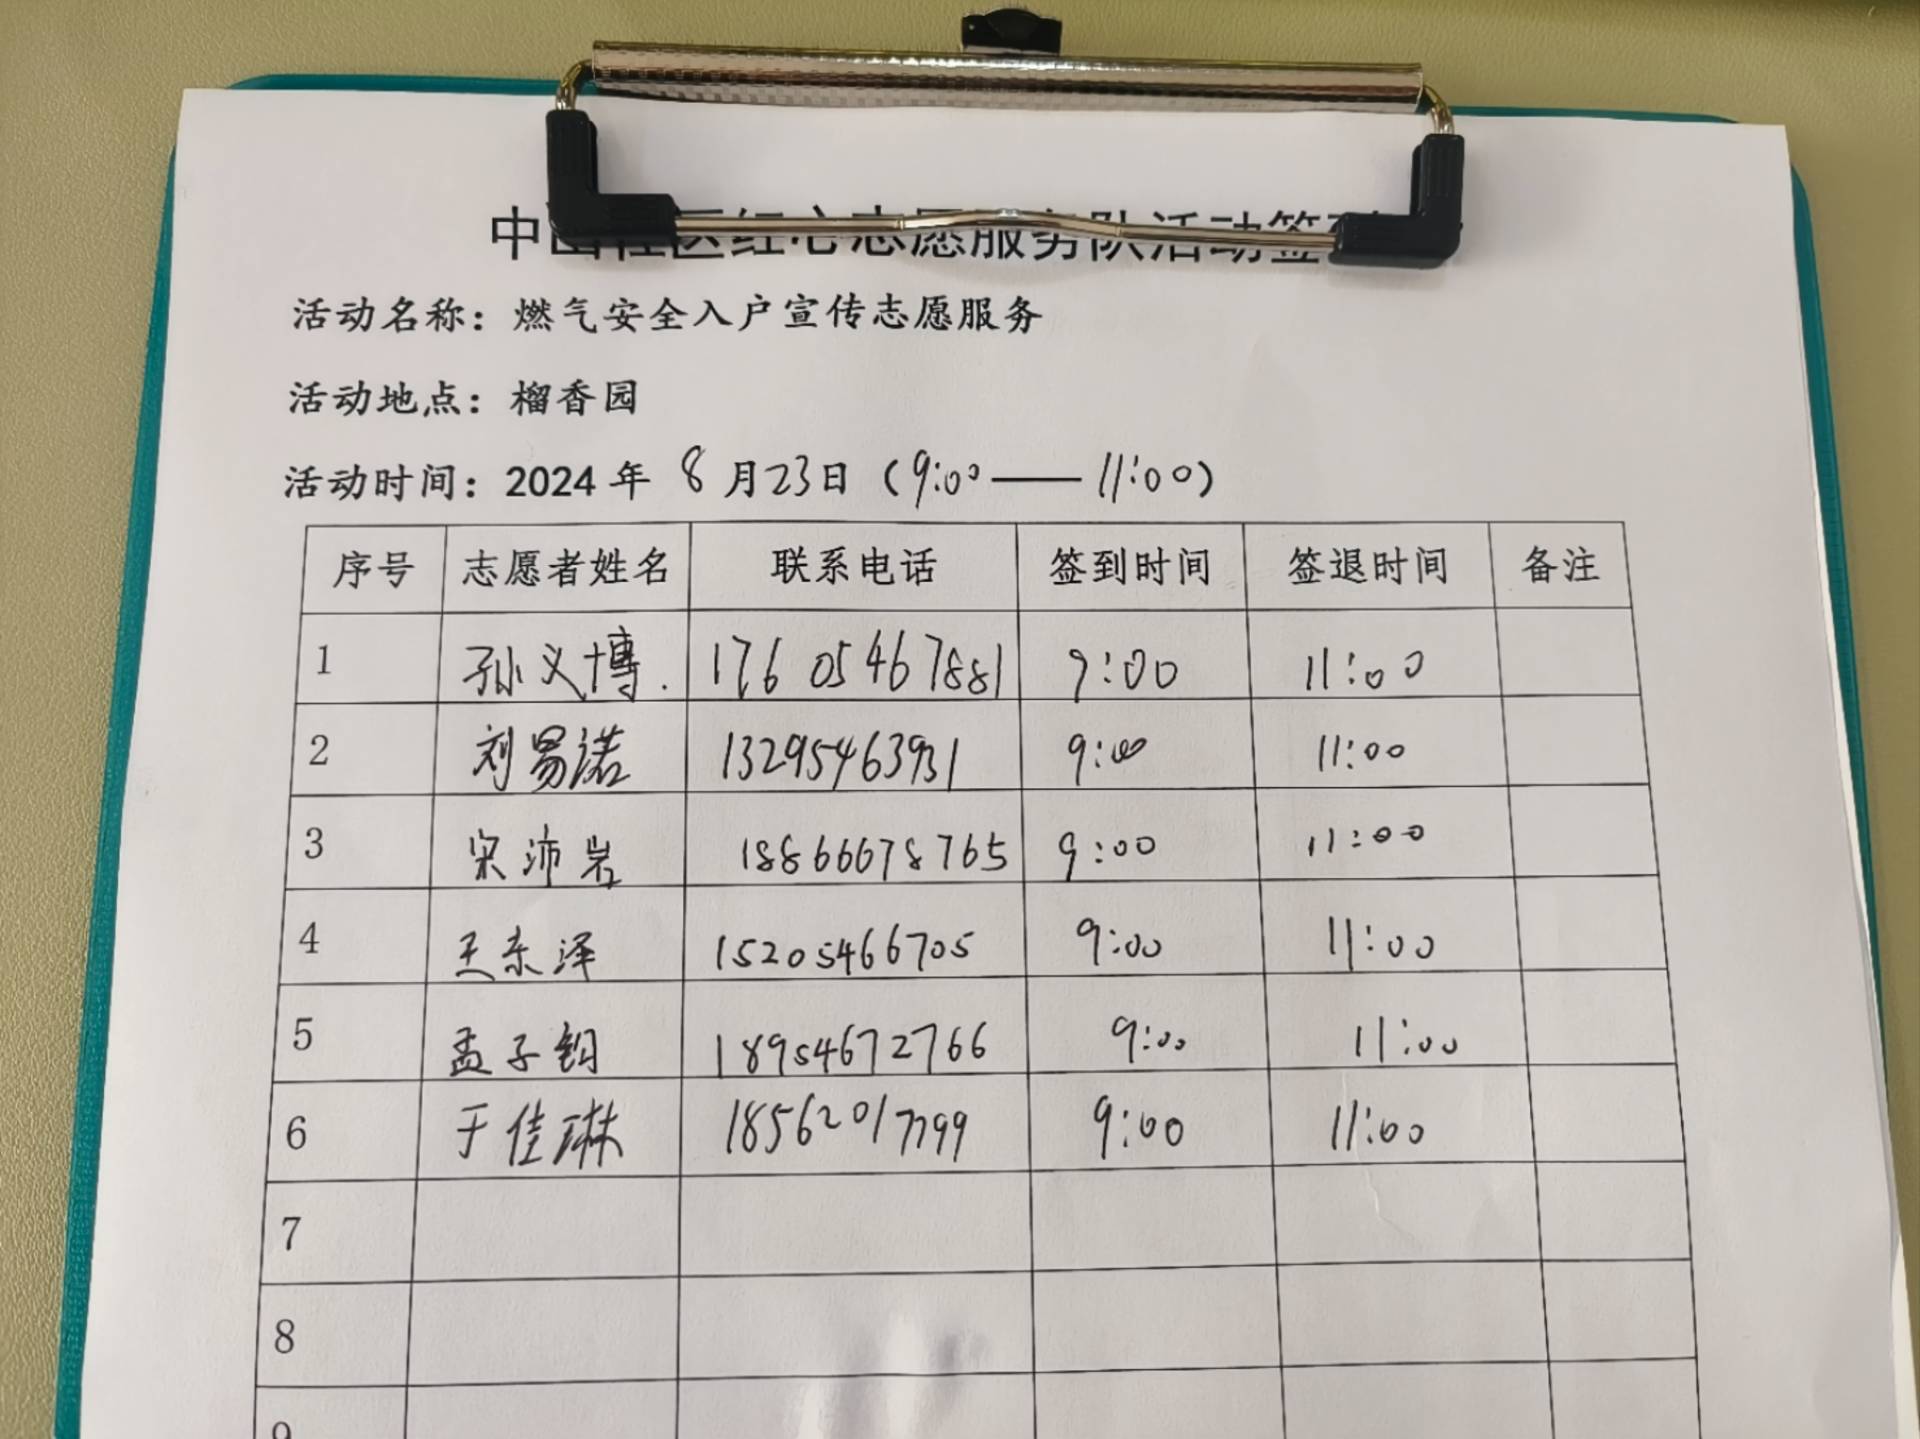 中山社区红心志愿服务队活动签到
活动名称：燃气安全入户宣传志愿服务
活动地点：榴香园
活动时间：2024 年 8 月23日（9:00——11:00）
序号 志愿者姓名 联系电话 签到时间 签退时间 备注
1 孙义博. 17605467881 9:00 11:00
2 刘易诺 13295463931 9:00 11:00
3 宋沛岩 18866678765 9:00 11:00
4 王东泽 15205466705 9:00 11:00
5 孟子钧 18954672766 9:00 11:00
6 于佳琳 18562017799 9:00 11:00
7
8
9